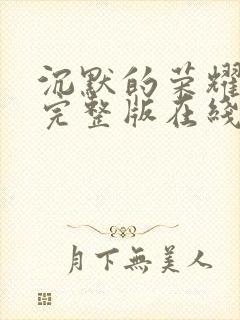 沉默的荣耀
完整版在綫
月下無美人